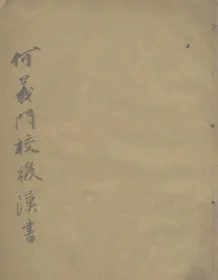 何義門校後漢書